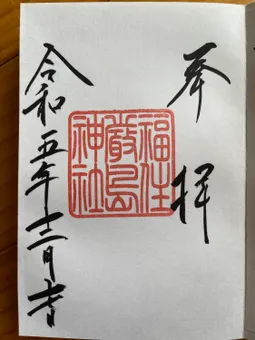 奉拝
福住
嚴島
神社
令和五年十二月吉